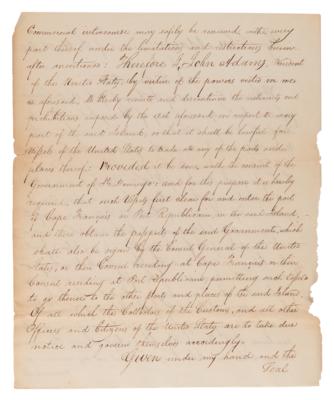 Commercial intercourse may safely be renewed with every
part thereof under the limitations and restrictions herein
after mentioned: Therefore I, John Adams, President
of the United States, by virtue of the powers vested in me
as aforesaid, do hereby remit and discontinue the restraints and
prohibitions imposed by the act aforesaid in respect to every
part of the said Island, so that it shall be lawful for
Vessels of the United States to trade at any of the ports and
places thereof: Provided it be done with the consent of the
Government of St Domingo: and for this purpose it is hereby
required, that such Vessels first clear for and enter the port
of Cape Français or Port Republicain in the said island,
and there obtain the passport of the said Government, which
shall also be signed by the Consul General of the United
States, or their Consul residing at Cape Français or their
Consul residing at Port Republicain, permitting such Vessels
to go thence to the other Ports and places of the said Island.
Of all which the Collectors of the Customs, and all other
Officers and Citizens of the United States are to take due
notice and govern themselves accordingly.
Given under my hand and the
Seal